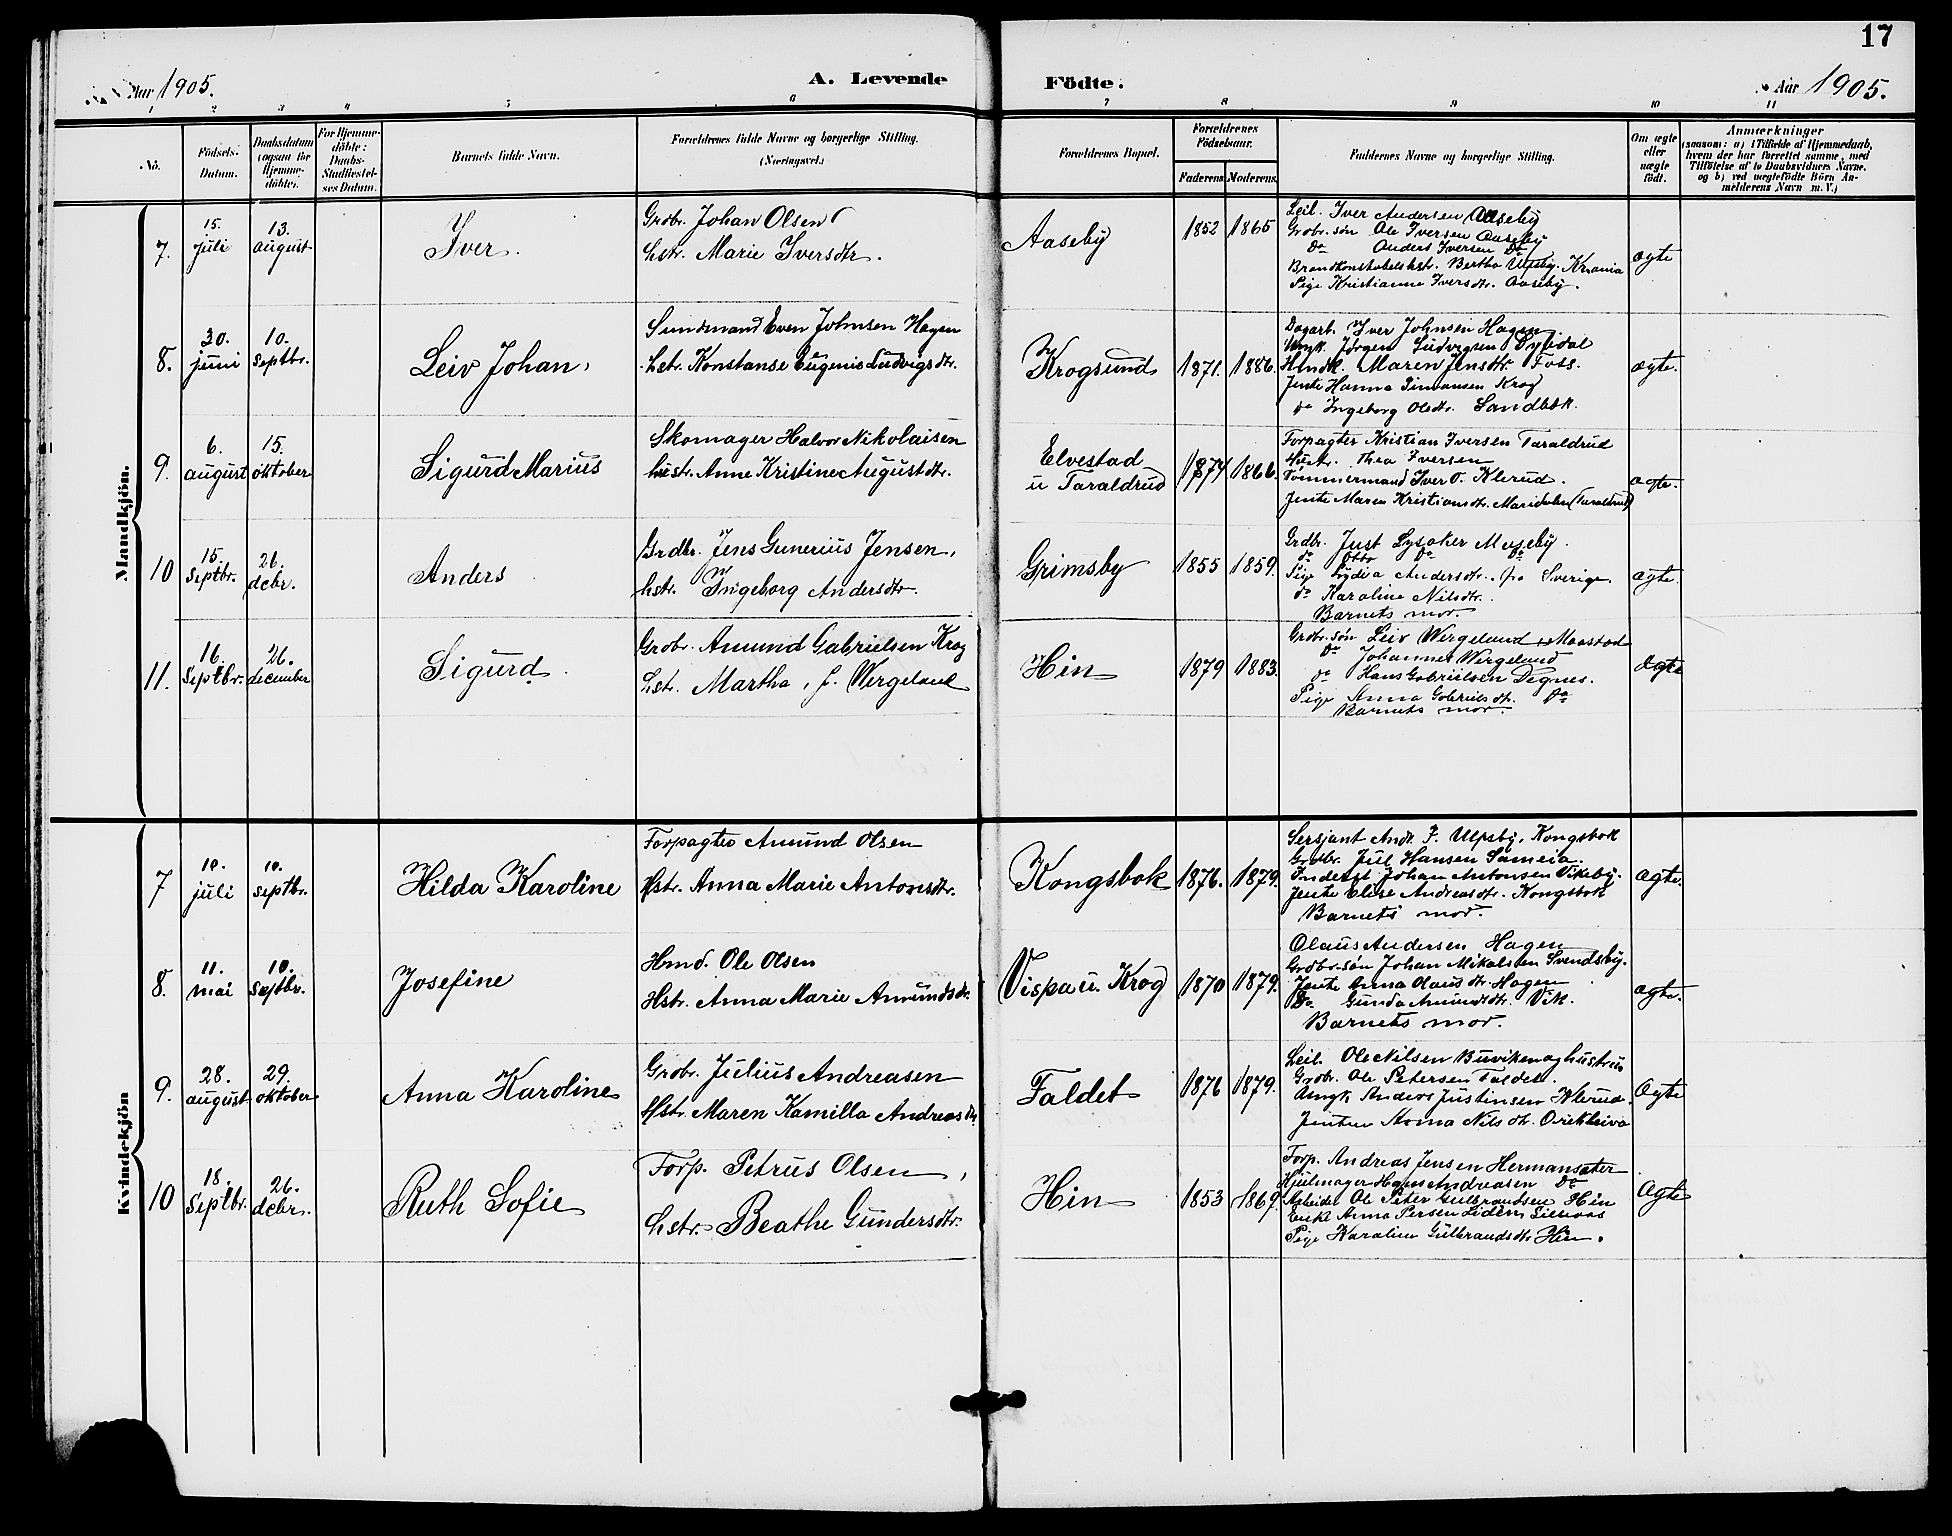 17
Aar 1905.
A. Levende Födte.
Aar 1905.
1 2 3 4 5 6 7 8 9 10 11
No.
Födsels-Datum.
Daabsdatum (ogsaa for Hjemme-döbte).
For Hjemme-döbte: Daabs-Stadfæstel-ses Datum.
Barnets fulde Navn.
Forældrenes fulde Navne og borgerlige Stilling. (Næringsvei.)
Forældrenes Bopæl.
Forældrenes Födselsaar.
Faderens. Moderens.
Faddernes Navne og borgerlige Stilling.
Om ægte eller uægte födt.
Anmærkninger
(saasom: a) i Tilfælde af Hjemmedaab, hvem der har forrettet samme, med Tilföielse af to Daabsvidners Navne. og b) ved uægtefödte Börn An-melderens Navn m. V.)
Mandkjön.
7. 15. juli 13. august
Iver.
Grdbr. Johan Olsen
hstr. Marie Iversdtr.
Aaseby
1852 1865
Leil. Iver Andersen Aaseby
Grdbr. søn Ole Iversen Aaseby
Do Anders Iversen Do
Brandkonstabelshstr. Bertha Ulfsby. Krania
Pige Kristianne Iversdtr. Aaseby.
ægte
8. 30. juni 10. septbr.
Leiv Johan.
Sundmand Even Johnsen Hagen
hstr. Konstanse Eugenie Ludvigsdtr.
Krogsund
1871. 1886.
Dagarb. Iver Johnsen Hagen
Ungk. Jørgen Ludvigsen Dyledal
Hmdk. Maren Jensdtr. Foss.
Jente Hanna Simonsen Krog
do Ingeborg Olsdtr. Sandbæk.
ægte.
9. 6. august 15. oktober
Sigurd Marius
Skomager Halvor Nikolaisen
hustr. Anne Kristine Augustdtr.
Elvestad
u Taraldrud
1874 1866.
Forpagter Kristian Iversen Taraldrud
Hustr. Thea Iversen
Tømmermand Iver O. Klerud.
Jente Maren Kristiansdtr. Maridalen (Taraldrud)
ægte.
10 15. septbr. 26. decbr.
Anders
Grdbr. Jens Gunerius Jensen,
hstr. Ingeborg Andersdtr.
Grimsby
1855 1859.
Grdbr. Just Lysaker Museby.
do Otto Do Do
Pige Lydia Andersdtr. fra Sverige
do Karoline Nilsdtr.
Barnets mor
ægte.
11. 16. Septbr. 26. december
Sigurd.
Grdbr. Amund Gabrielsen Krog
hstr. Martha, f. Wergeland
Hin
1879 1883.
Grdbr. søn Leiv Wergeland, Maastad
Do Johannes Wergeland
do Hans Gabrielsen Degnes.
Pige Anna Gabrielsdtr. Do
Barnets mor.
ægte
Kvindekjön
7 10. juli 10. septbr.
Hilda Karoline
Forpagter Amund Olsen
Hstr. Anna Marie Antonsdtr.
Kongsbok
1876. 1879.
Sersjant Andr. F. Ulfsby, Kongsbok
Grdbr. Jul Hansen Sameia.
Inderst Johan Antonsen Vikeby.
Jente Elise Andreasdtr. Kongsbok
Barnets mor.
ægte.
8. 11. mai 10. septbr.
Josefine
Hmd. Ole Olsen
Hstr. Anna Marie Amundsdtr.
Vispa u. Krog
1870 1879.
Olaus Andersen Hagen
Grdbr. søn Johan Mikalsen Svendsby.
Jente Anna Olausdtr. Hagen
Do Gunda Amundsdtr. Vik.
Barnets mor.
ægte.
9. 28. august 29. oktober
Anna Karoline
Grdbr. Julius Andreasen
Hstr. Maren Kamilla Andreasdtr.
Faldet
1876 1879.
Leil. Ole Nilsen Buviken og hustru
Grdbr. Ole Petersen Faldet.
Ungk. Anders Justinsen Klerud.
Jenten Anna Nilsdtr.
Ægte
10 18. Septbr. 26. decbr.
Ruth Sofie
Forp. Petrus Olsen,
hstr. Beathe Gundersdtr.
Hin
1853 1869.
Forp. Andreas Jensen Hermansæter
Hjulmager Hans Andreasen Do
Arbeider Ole Peter Gulbrandsen Hin
Enke Anna Persen Lidén
Pige Karoline Gulbrandsdtr. Hin.
Ægte